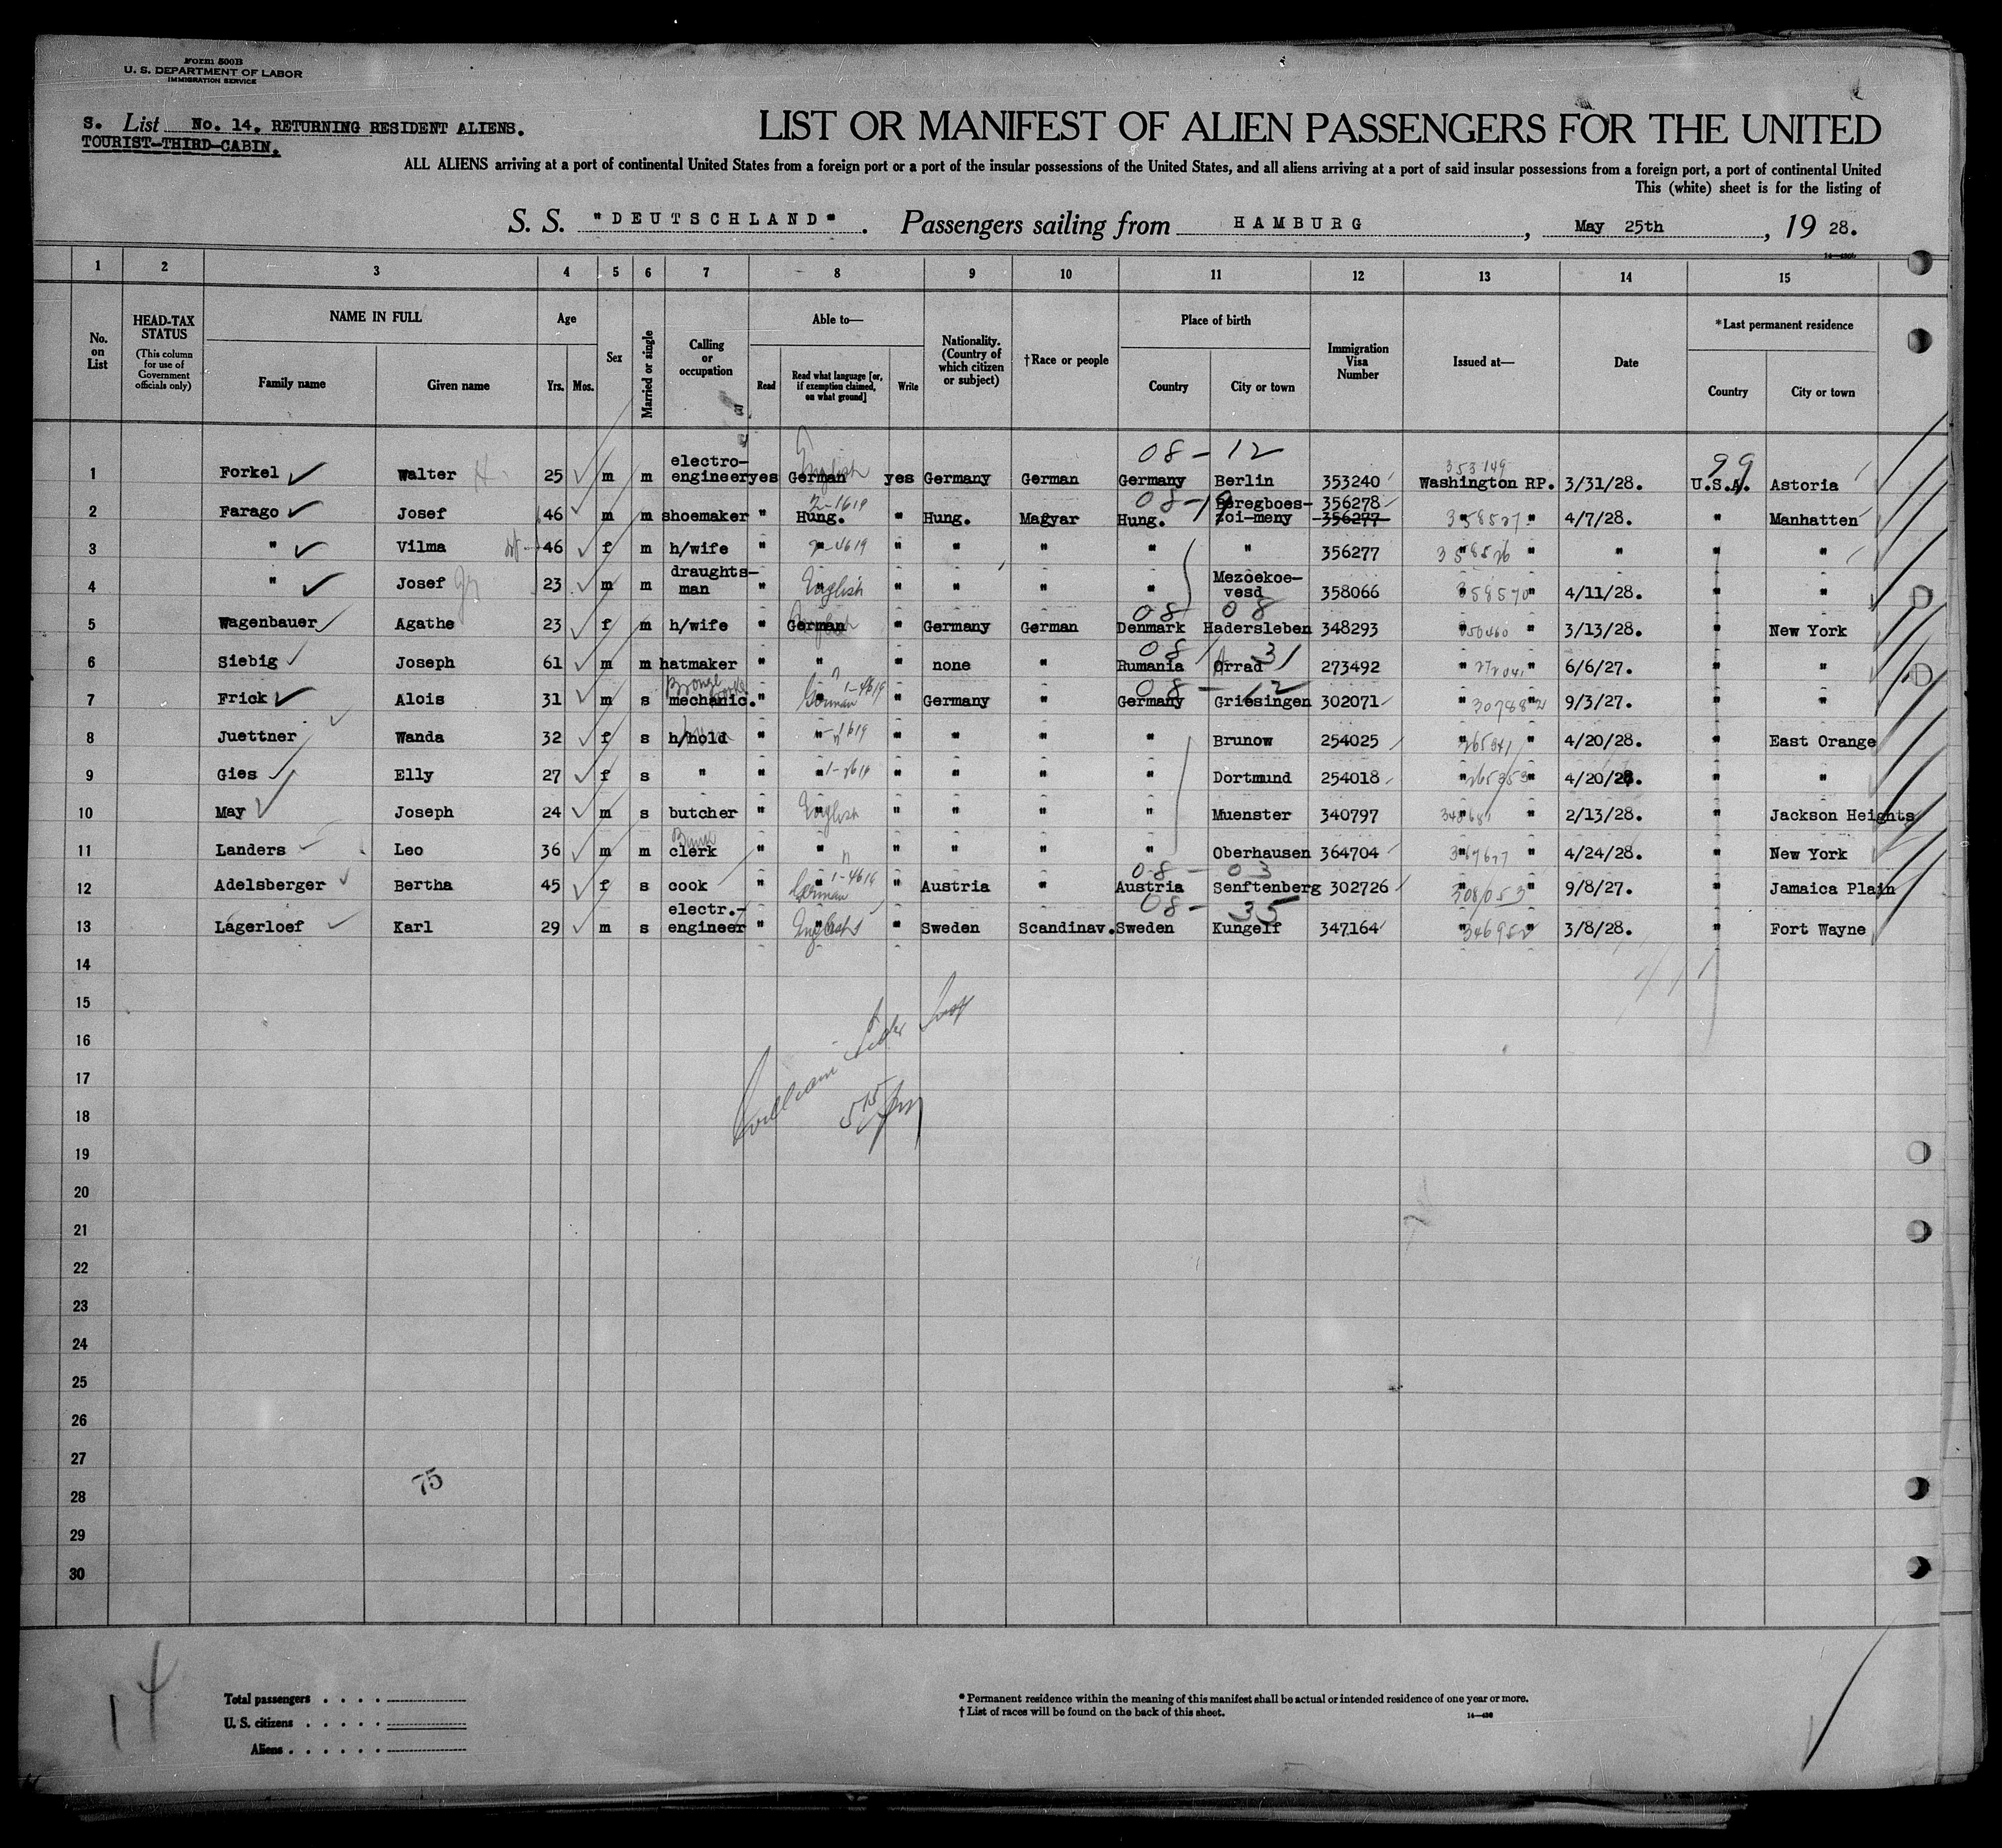 Form 500B
U. S. DEPARTMENT OF LABOR
IMMIGRATION SERVICE
S. List No. 14. RETURNING RESIDENT ALIENS.
TOURIST-THIRD-CABIN.
LIST OR MANIFEST OF ALIEN PASSENGERS FOR THE UNITED
ALL ALIENS arriving at a port of continental United States from a foreign port or a port of the insular possessions of the United States, and all aliens arriving at a port of said insular possessions from a foreign port, a port of continental United
This (white) sheet is for the listing of
S. S. "DEUTSCHLAND". Passengers sailing from HAMBURG, May 25th, 19 28.
1 2 3 4 5 6 7 8 9 10 11 12 13 14 15
No. on List
HEAD-TAX STATUS
(This column for use of Government officials only)
NAME IN FULL
Family name
Given name
Age
Yrs. Mos.
Sex
Married or single
Calling or occupation
Able to—
Read
Read what language [or, if exemption claimed, on what ground]
Write
Nationality. (Country of which citizen or subject)
†Race or people
Place of birth
Country
City or town
Immigration Visa Number
Issued at—
Date
*Last permanent residence
Country
City or town
08 - 12
353149
99
1 Forkel Walter H 25 m m electro-engineer yes German English yes Germany German Germany Berlin 353240 Washington RP. 3/31/28. U.S.A. Astoria
2-1619
08-19
356278
2 Farago Josef 46 m m shoemaker " Hung. " Hung. Magyar Hung. Beregboes-zoi-meny 356277 " 358527 " 4/7/28. " Manhatten
3 " Vilma 46 f m h/wife " " " " " " " 356277 " " " " "
4 " Josef Jr 23 m m draughts-man " " English " " " " Mezoekoe-vesd 358066 " 358570 " 4/11/28. " "
08 08
5 Wagenbauer Agathe 23 f m h/wife " German " Germany German Denmark Hadersleben 348293 " " 3/13/28. " New York
08 31
6 Siebig Joseph 61 m m hatmaker " " " none " Rumania Orrad 273492 " " 6/6/27. " "
Bronze
08 - 12
7 Frick Alois 31 m s mechanic. " " German 1-4619 " Germany " Germany Griesingen 302071 " " 9/3/27. " "
8 Juettner Wanda 32 f s h/hold " " " " " " Brunow 254025 " " 4/20/28. " East Orange
9 Gies Elly 27 f s " " " " " " " Dortmund 254018 " 265353 " 4/20/28. " "
10 May Joseph 24 m s butcher " " English " " " " Muenster 340797 " 2/13/28. " Jackson Heights
11 Landers Leo 36 m m clerk " " " " " " Oberhausen 364704 " " 4/24/28. " New York
08 - 03
12 Adelsberger Bertha 45 f s cook " " German 1-4619 " Austria " Austria Senftenberg 302726 " 308053 9/8/27. " Jamaica Plain
08 - 35
13 Lagerloef Karl 29 m s electr.-engineer " " English " Sweden Scandinav. Sweden Kungelf 347164 " " 3/8/28. " Fort Wayne
14
15
16
17
18
19
20
21
22
23
24
25
26
27
28
29
30
75
14
Total passengers . . . .
U. S. citizens . . . . .
Aliens . . . . . .
* Permanent residence within the meaning of this manifest shall be actual or intended residence of one year or more.
† List of races will be found on the back of this sheet.